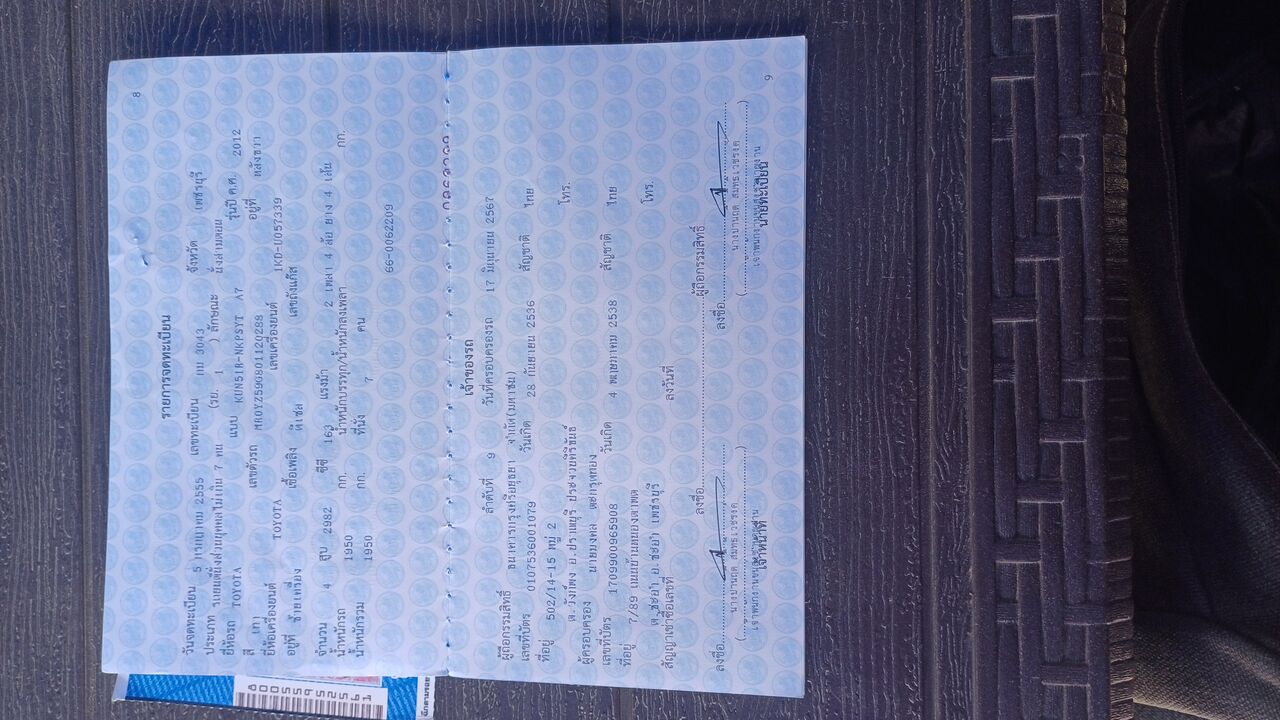 8
รายการจดทะเบียน
วันจดทะเบียน 5 กรกฎาคม 2555 เลขทะเบียน กม 3043 จังหวัด เพชรบุรี
ประเภท รถยนต์นั่งส่วนบุคคลไม่เกิน 7 คน (รย. 1 ) ลักษณะ นั่งสามตอน
ยี่ห้อรถ TOYOTA แบบ KUN51R-NKPSYT A7 รุ่นปี ค.ศ. 2012
สี เทา เลขตัวรถ MR0YZ59G801120288 อยู่ที่ หลังขวา
ยี่ห้อเครื่องยนต์ TOYOTA เลขเครื่องยนต์ 1KD-U057339
อยู่ที่ ซ้ายเครื่อง เชื้อเพลิง ดีเซล เลขถังแก๊ส
จำนวน 4 สูบ 2982 ซีซี 163 แรงม้า 2 เพลา 4 ล้อ ยาง 4 เส้น
น้ำหนักรถ 1950 กก. น้ำหนักบรรทุก/น้ำหนักลงเพลา กก.
น้ำหนักรวม 1950 กก. ที่นั่ง 7 คน
66-0062209
เจ้าของรถ
ลำดับที่ 9 วันที่ครอบครองรถ 17 มิถุนายน 2567
ผู้ถือกรรมสิทธิ์ ธนาคารกรุงศรีอยุธยา จำกัด(มหาชน)
เลขที่บัตร 0107536001079 วันเกิด 28 กันยายน 2536 สัญชาติ ไทย
ที่อยู่ 502/14-15 หมู่ 2 โทร.
ต.วังก์พง อ.ปราณบุรี ประจวบคีรีขันธ์
ผู้ครอบครอง นายมงคล
เลขที่บัตร 1709900965908 วันเกิด 4 พฤษภาคม 2538 สัญชาติ ไทย
ที่อยู่ 7/89 ถนนบ้านหนองตาพด โทร.
ต.ชะอำ อ.ชะอำ เพชรบุรี
สัญญาเช่าซื้อเลขที่ ลงวันที่
ลงชื่อ ผู้ถือกรรมสิทธิ์
ลงชื่อ ลงชื่อ
เจ้าหน้าที่ นายทะเบียน
9